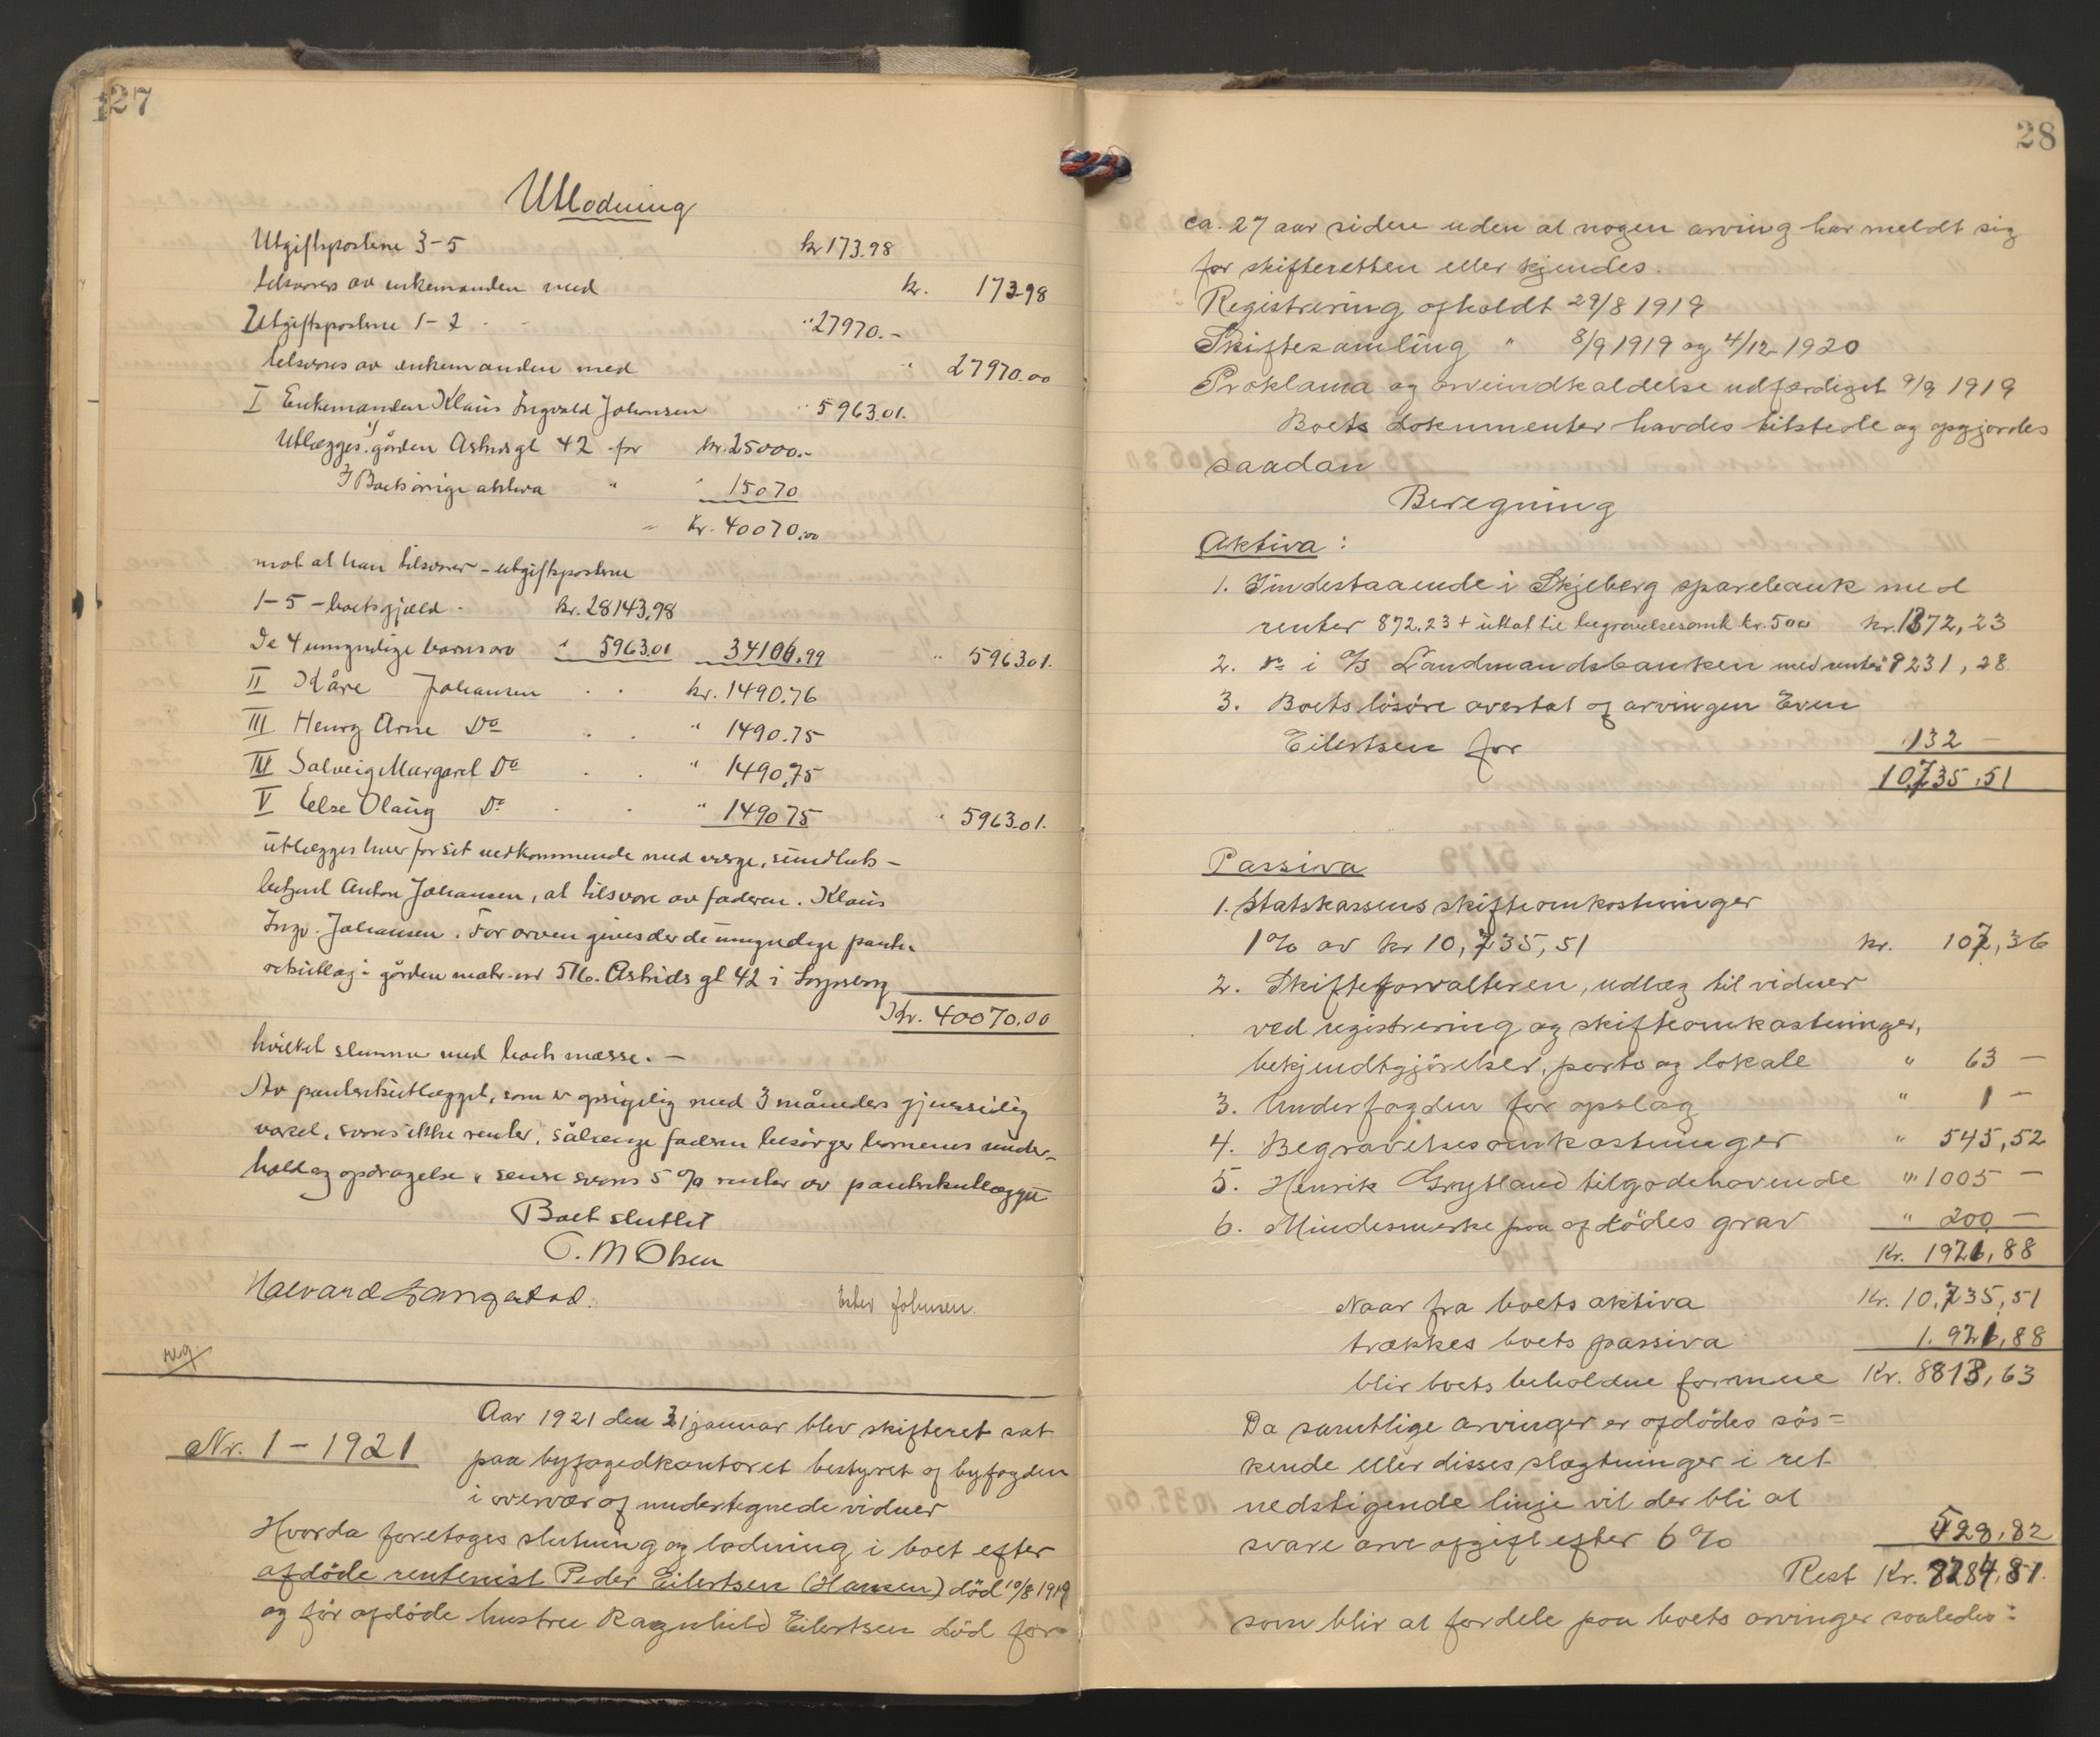 127
Utlodning
Utgiftspostene 3-5 kr 173.98
tilsvares av enkemanden med kr. 173.98
Utgiftspostene 1-2 - - " 27970.-
tilsvares av enkemanden med " 27970.00
I Enkemanden Klaus Ingvald Johansen " 5963.01.
Utlægges 1) gården Astridsgt 42 for kr. 25000.-
2 Boets øvrige aktiva " " 15070
" kr. 40070.00
mot at han tilsvarer - utgiftsposterne
1-5 - boets gjæld - kr. 28143,98
De 4 umyndige barns arv " 5963.01 34106.99 " 5963.01.
II Kåre Johansen . . kr. 1490.76
III Henry Arne Do . . " 1490.75
IV Solveig Margaret Do . . " 1490,75
V Else Olaug Do . . " 1490 75 " 5963.01.
utlægges hver for sit vedkommende med verge,
Anton Johansen, at tilsvare av faderen. Klaus
Ingv. Johansen. For arven gives der de umyndige pante-
retsutlæg i gården matr. nr 516. Astrids gt 42 i Sarpsborg
Kr. 40070.00
hvilket stemmer med boets masse. -
Av panteretsutlægget, som er opsigelig med 3 måneders gjensidig
varsel, svares ikke renter, sålænge faderen besørger børnenes under-
hold og opdragelse, senere svares 5 % renter av panteretsutlægget
Boet sluttet
C. M Olsen
Halvard Langstad. Ester Johnsen.
reg
Nr. 1 - 1921
Aar 1921 den 31 januar blev skifteret sat
paa byfogedkontoret bestyret af byfogden
i overvær af undertegnede vidner
Hvorda foretoges slutning og lodning i boet efter
afdöde rentenist Peder Eilertsen (Hansen) död 10/8 1919
og før afdöde hustru Ragnhild Eilertsen död for
28
ca. 27 aar siden uden at nogen arving har meldt sig
for skifteretten eller kjendes.
Registrering afholdt 29/8 1919
Skiftesamling " 8/9 1919 og 4/12 1920
Proklama og arveindkaldelse udfærdiget 9/9 1919
Boets dokumenter havdes tilstede og opgjordes
saadan
Beregning
Aktiva:
1. Indestaaende i Skjeberg sparebank med
renter 872,23 + uttat til begravelsesomk kr. 500 kr. 1372,23
2. Do i A/S Landmandsbanken med renter 9231,28
3. Boets lösöre overtat af arvingen Even
Eilertsen for 132 -
10,735,51
Passiva
1. Statskassens skifteomkostninger
1% av kr 10,735,51 kr. 107,36
2. Skifteforvalteren, udlæg til vidner
ved registrering og skifteomkostninger,
bekjendtgjörelser, porto og lokale " 63 -
3. Underfogden for opslag " 1 -
4. Begravelsesomkostninger " 545,52
5. Henrik Grytland tilgodehavende " 1005 -
6. Mindesmerke paa afdödes grav " 200 -
Kr. 1921,88
Naar fra boets aktiva Kr. 10,735,51
trækkes boets passiva 1.921,88
blir boets beholdne formue Kr. 8813,63
Da samtlige arvinger er afdödes sös-
kende eller disses slægtninger i ret
nedstigende linje vil der bli at
svare arveafgift efter 6% 528,82
Rest Kr. 8284,81.
som blir at fordele paa boets arvinger saaledes: